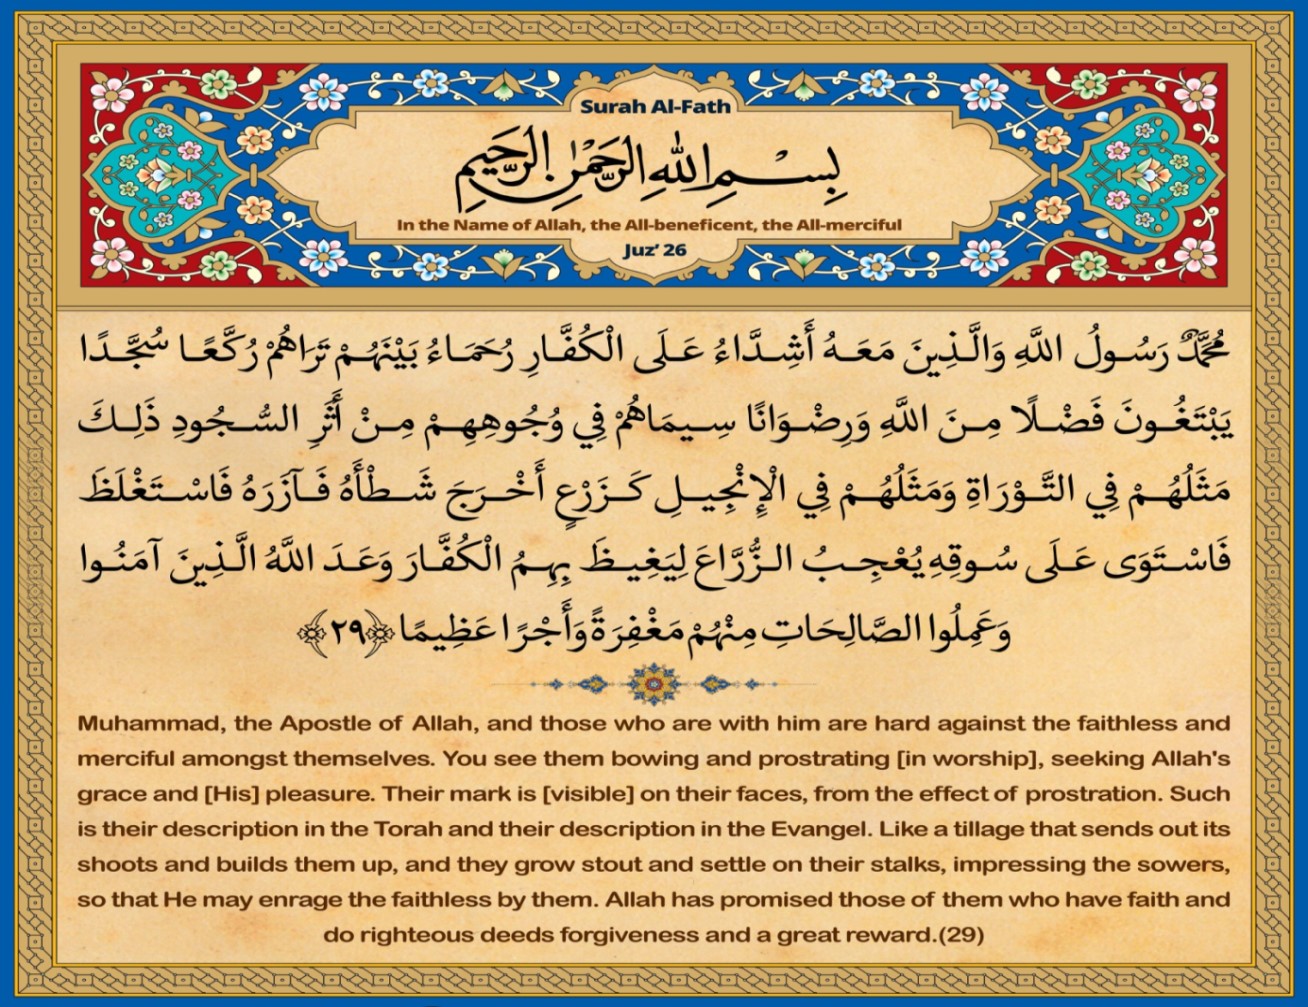 Surah Al-Fath
بِسْمِ اللهِ الرَّحْمٰنِ الرَّحِيمِ
In the Name of Allah, the All-beneficent, the All-merciful
Juz’ 26
مُحَمَّدٌ رَسُولُ اللَّهِ وَالَّذِينَ مَعَهُ أَشِدَّاءُ عَلَى الْكُفَّارِ رُحَمَاءُ بَيْنَهُمْ تَرَاهُمْ رُكَّعًا سُجَّدًا
يَبْتَغُونَ فَضْلًا مِنَ اللَّهِ وَرِضْوَانًا سِيمَاهُمْ فِي وُجُوهِهِمْ مِنْ أَثَرِ السُّجُودِ ذَلِكَ
مَثَلُهُمْ فِي التَّوْرَاةِ وَمَثَلُهُمْ فِي الْإِنْجِيلِ كَزَرْعٍ أَخْرَجَ شَطْأَهُ فَآزَرَهُ فَاسْتَغْلَظَ
فَاسْتَوَى عَلَى سُوقِهِ يُعْجِبُ الزُّرَّاعَ لِيَغِيظَ بِهِمُ الْكُفَّارَ وَعَدَ اللَّهُ الَّذِينَ آمَنُوا
وَعَمِلُوا الصَّالِحَاتِ مِنْهُمْ مَغْفِرَةً وَأَجْرًا عَظِيمًا ﴿٢٩﴾
Muhammad, the Apostle of Allah, and those who are with him are hard against the faithless and
merciful amongst themselves. You see them bowing and prostrating [in worship], seeking Allah's
grace and [His] pleasure. Their mark is [visible] on their faces, from the effect of prostration. Such
is their description in the Torah and their description in the Evangel. Like a tillage that sends out its
shoots and builds them up, and they grow stout and settle on their stalks, impressing the sowers,
so that He may enrage the faithless by them. Allah has promised those of them who have faith and
do righteous deeds forgiveness and a great reward.(29)